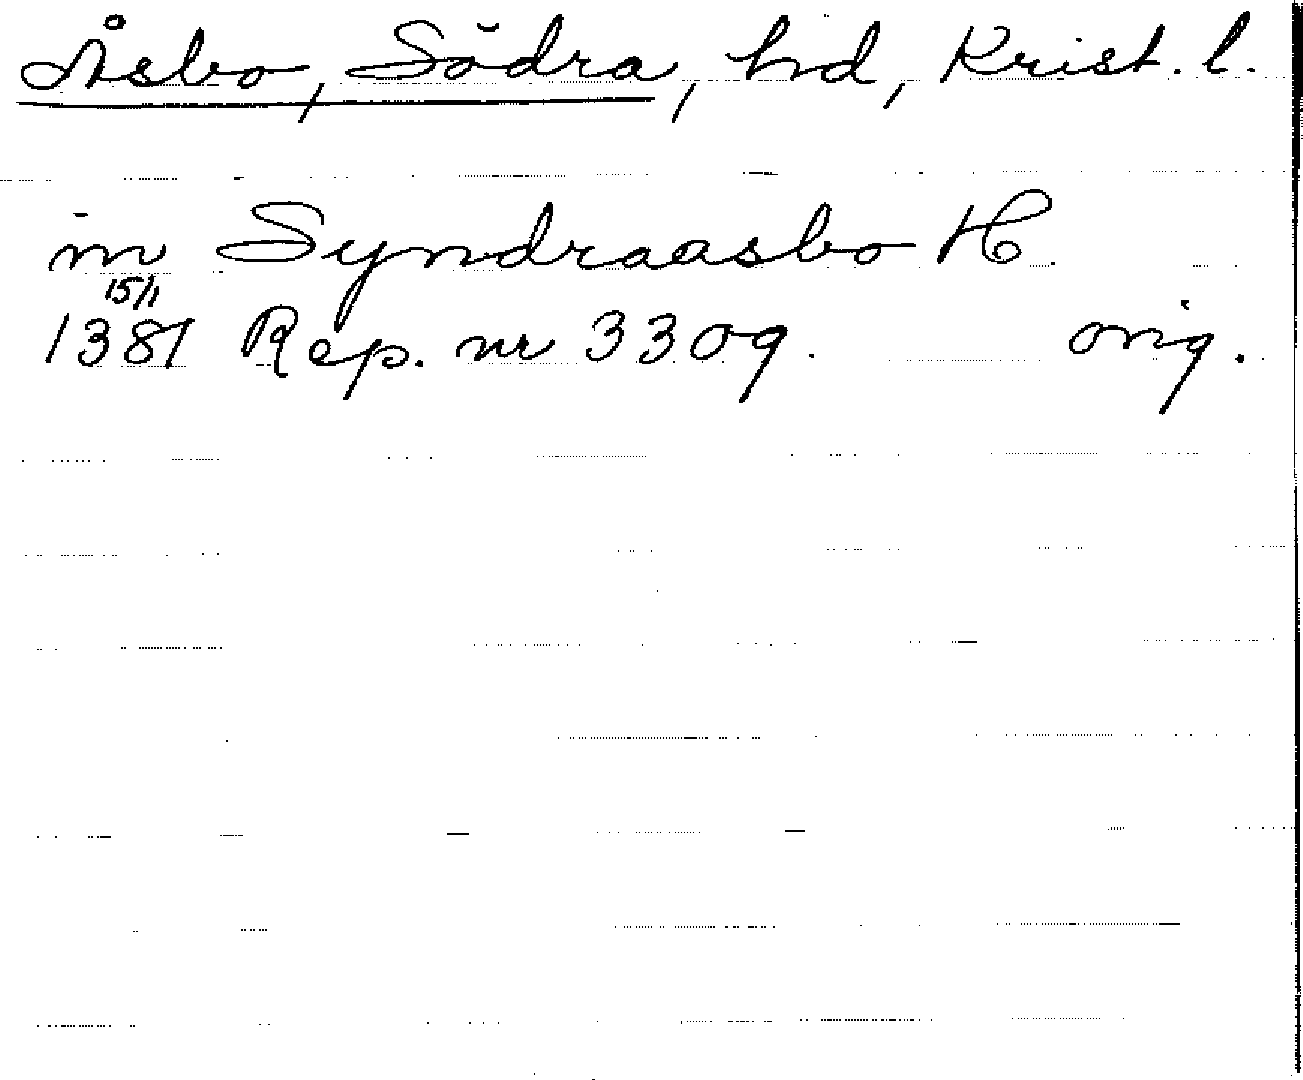 Åsbo, Södra, hd, Krist. l.
in Syndraasbo H
15/1
1381 Rep. nr 3309. orig.